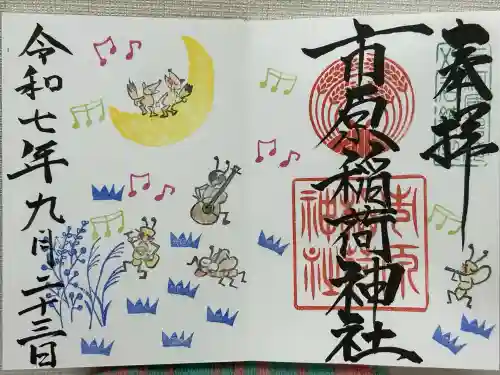 奉拝
市原稲荷神社
令和七年九月二十三日